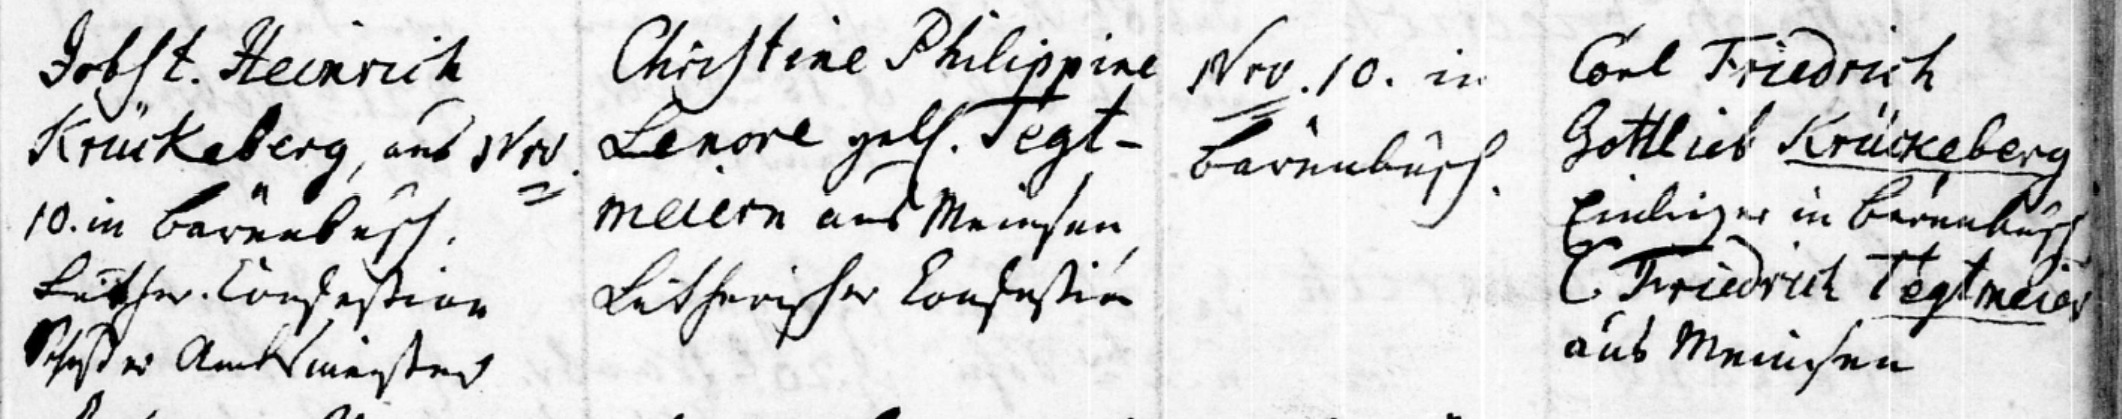 Jobst. Heinrich
Krückeberg, aus Nro.
10. in Bärenbusch.
Luther. Confession
Amtsmeister
Christine Philippine
Lenore gebh. Tegt-
meiern aus Meinsen,
Lutherischer Confession
Nro. 10. in
Bärenbusch.
Carl Friedrich
Gottlieb Krückeberg
Einlieger in Bärenbusch
C. Friedrich Tegtmeier
aus Meinsen